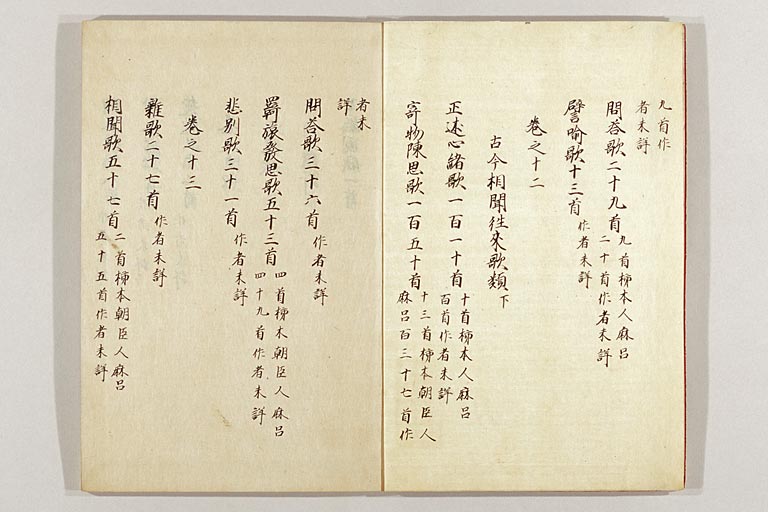 九首作
者未詳
問答歌二十九首九首柿本人麻呂
二十首作者未詳
譬喻歌十三首作者未詳
卷之十二
古今相聞往來歌類下
正述心緒歌一百一十首十首柿本人麻呂
百首作者未詳
寄物陳思歌一百五十首十三首柿本朝臣人
麻呂百三十七首作
者未
詳
問答歌三十六首作者未詳
羇旅發思歌五十三首四首柿本朝臣人麻呂
四十九首作者未詳
悲別歌三十一首作者未詳
卷之十三
雜歌二十七首作者未詳
相聞歌五十七首二首柿本朝臣人麻呂
五十五首作者未詳